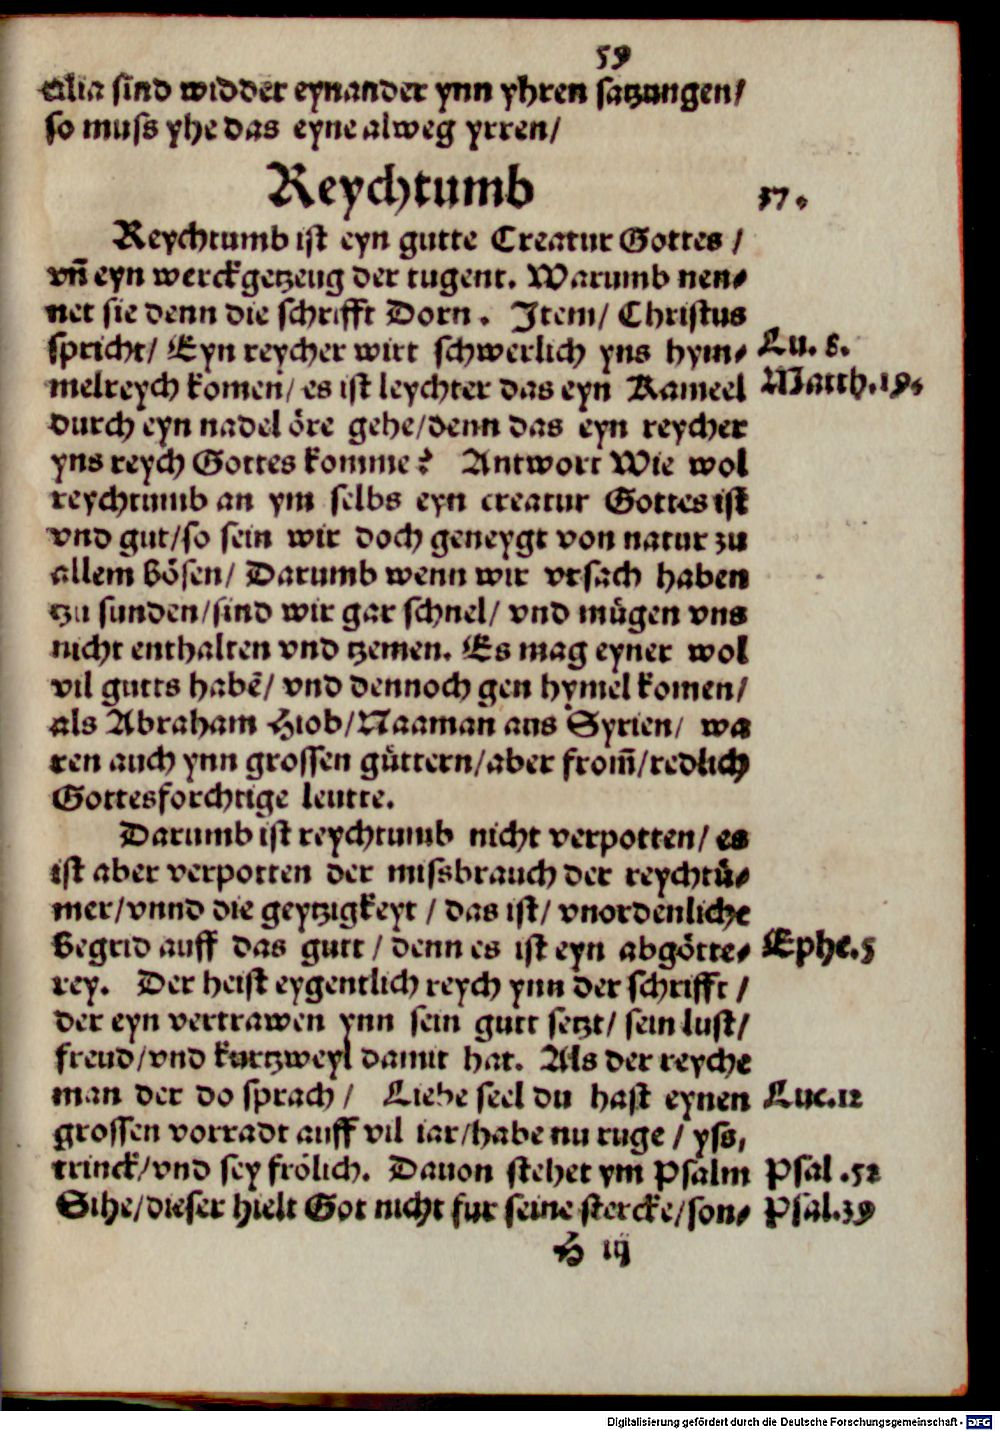 59
cilia sind widder eynander ynn yhren satzungen/
so muss yhe das eyne alweg yrren/
Reychtumb
37.
Reychtumb ist eyn gutte Creatur Gottes /
vñ eyn werckgetzeug der tugent. Warumb nen⸗
net sie denn die schrifft Dorn. Item/ Christus
spricht/ Eyn reycher wirt schwerlich yns hym⸗ Lu. 8.
melreych komen/ es ist leychter das eyn Kameel Matth.19.
durch eyn nadel öre gehe/denn das eyn reycher
yns reych Gottes komme? Antwort Wie wol
reychtumb an ym selbs eyn creatur Gottes ist
vnd gut/so sein wir doch geneygt von natur zu
allem bösen/ Darumb wenn wir vrsach haben
tzu sunden/sind wir gar schnel/ vnd mügen vns
nicht enthalten vnd tzemen. Es mag eyner wol
vil gutts habē/ vnd dennoch gen hymel komen/
als Abraham Hiob/Naaman aus Syrien/ wa
ren auch ynn grossen güttern/aber from̄/redlich
Gottesforchtige leutte.
Darumb ist reychtumb nicht verpotten/ es
ist aber verpotten der missbrauch der reychtü⸗
mer/vnnd die geytzigkeyt / das ist/ vnordenliche
begrid auff das gutt / denn es ist eyn abgötte⸗ Ephe.5
rey. Der heist eygentlich reych ynn der schrifft /
der eyn vertrawen ynn sein gutt setzt/ sein lust/
freud/vnd kurtzweyl damit hat. Als der reyche
man der do sprach / Liebe seel du hast eynen Luc.12
grossen vorradt auff vil iar/habe nu ruge / yss,
trinck/vnd sey frölich. Dauon stehet ym Psalm Psal .52
Sihe/dieser hielt Got nicht fur seine stercke/son⸗ Psal.39
H iij
Digitalisierung gefördert durch die Deutsche Forschungsgemeinschaft - DFG